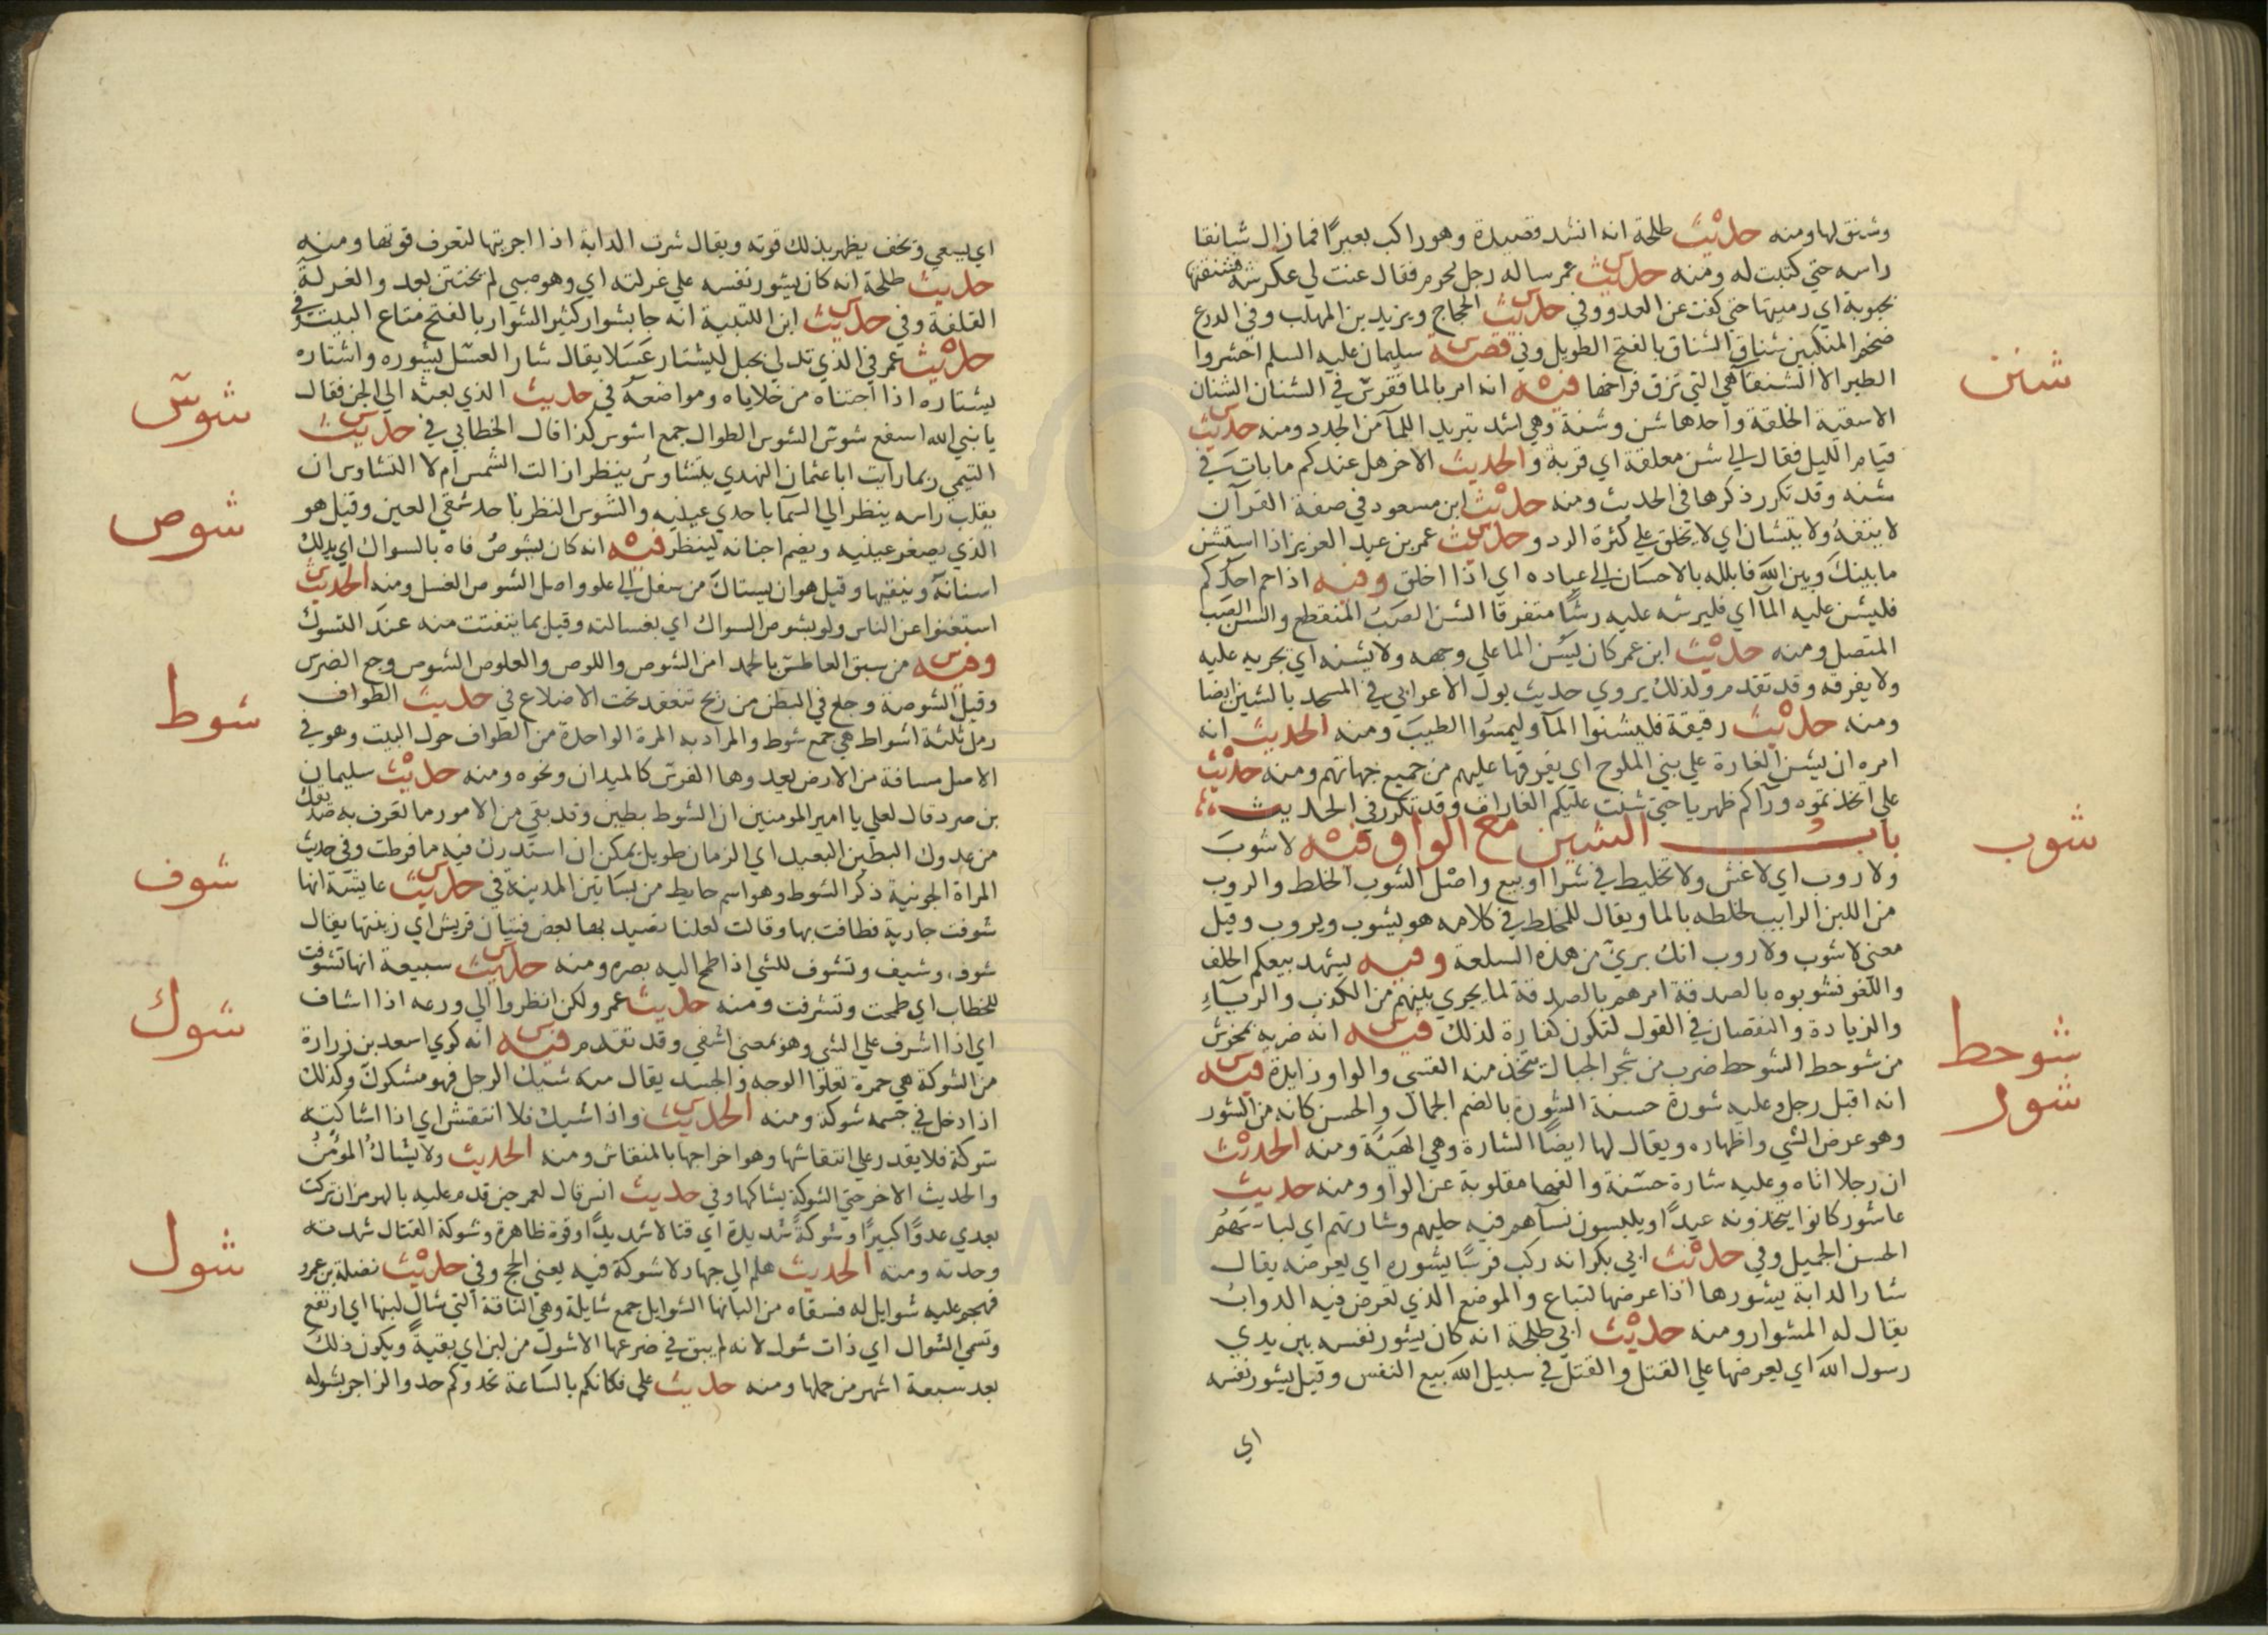 وشنق لها ومنه حديث طلحة انه انشد قصيدة وهو راكب بعيرا فمازال شانقا
راسه حتي كتبت له ومنه حديث عمر ساله رجل محرم فقال عنت لي عكرشة فشنقتها
بجبوبة اي رميتها حتي كفت عن العدو وفي حديث الحجاج ويزيد بن المهلب وفي الدرع
ضخم المنكبين شناق الشناق بالفتح الطويل وفي قصة سليمان عليه السلم احشروا
الطير الا الشنقآ هي التي تزق فراخها فيه انه امر بالما فقرس في الشنان الشنان
شنن
الاسقية الخلقة واحدها شن وشنة وهي اشد تبريد اللمآ من الجدد ومنه حديث
قيام الليل فقال الي شن معلقة اي قربة والحديث الاخر هل عندكم ما بات في
شنه وقد تكرر ذكرها في الحديث ومنه حديث ابن مسعود في صفة القرآن
لا يتفه ولا يتشان اي لا يخلق علي كثرة الرد وحديث عمر بن عبد العزيز اذا استشن
ما بينك وبين الله فابلله بالاحسان الي عباده اي اذا اخلق وفيه اذا حم احدكم
فليشن عليه المآ اي فليرشه عليه رشا متفرقا الشن الصب المنقطع والسن الصب
المتصل ومنه حديث ابن عمر كان يسن الما علي وجهه ولا يشنه اي يجريه عليه
ولا يفرقه وقد تقدم ولذلك يروي حديث بول الاعرابي في المسجد بالشين ايضا
ومنه حديث رقيقة فليشنوا المآ وليمسوا الطيب ومنه الحديث انه
امره ان يشن الغارة علي بني الملوح اي يفرقها عليهم من جميع جهاتهم ومنه حديث
علي اتخذتموه ورآكم ظهريا حتي شنت عليكم الغارات وقد تكرر في الحديث
باب الشين مع الواو فيه لا شوب
شوب
ولا روب اي لا غش ولا تخليط في شرا او بيع واصل الشوب الخلط والروب
من اللبن الرايب لخلطه بالما ويقال للمخلط في كلامه هو يشوب ويروب وقيل
معني لا شوب ولا روب انك بري من هذه السلعة وفيه يشهد بيعكم الحلف
واللغو فشوبوه بالصدقة امرهم بالصدقة لما يجري بينهم من الكذب والربآء
والزيادة والنقصان في القول لتكون كفارة لذلك فيه انه ضربه بمخرش
شوحط
من شوحط الشوحط ضرب من شجر الجبال يتخذ منه القسي والواو زايدة فيه
شور
انه اقبل رجل وعليه شورة حسنة الشورة بالضم الجمال والحسن كانه من الشور
وهو عرض الشي واظهاره ويقال لها ايضا الشارة وهي الهيئة ومنه الحديث
ان رجلا اتاه وعليه شارة حسنة والفها مقلوبة عن الواو ومنه حديث
عاشور كانوا يتخذونه عيدا ويلبسون نسآهم فيه حليهم وشارتهم اي لباسهم
الحسن الجميل وفي حديث ابي بكر انه ركب فرسا يشوره اي يعرضه يقال
شار الدابة يشورها اذا عرضها لتباع والموضع الذي تعرض فيه الدواب
يقال له المشوار ومنه حديث ابي طلحة انه كان يشور نفسه بين يدي
رسول الله اي يعرضها علي القتل والقتل في سبيل الله بيع النفس وقيل يشور نفسه
اي
اي يسعي وتخف يظهر بذلك قوته ويقال شرت الدابة اذا اجريتها لتعرف قوتها ومنه
حديث طلحة انه كان يشور نفسه علي غرلته اي وهو صبي لم يختتن بعد والغرلة
القلفة وفي حديث ابن اللتبية انه جا بشوار كثير الشوار بالفتح متاع البيت وفي
حديث عمر في الذي تدلي بحبل ليشتار عسلا يقال شار العسل يشوره واشتاره
يشتاره اذا اجتناه من خلاياه ومواضعه في حديث الذي بعثه الي الجن فقال
شوس
يا نبي الله اسفع شوس الشوس الطوال جمع اشوس كذا قال الخطابي في حديث
التيمي ربما رايت ابا عثمان النهدي يتشاوس ينظر ازالت الشمس ام لا التشاوس ان
يقلب راسه ينظر الي السمآ باحدي عينيه والشوس النظر باحد شقي العين وقيل هو
شوص
الذي يصغر عينيه ويضم اجفانه لينظر فيه انه كان يشوص فاه بالسواك اي يدلك
اسنانه وينقيها وقيل هو ان يستاك من سفل الي علو واصل الشوص الغسل ومنه الحديث
استغنوا عن الناس ولو بشوص السواك اي بغسالته وقيل بما يتفتت منه عند التسوك
وفيه من سبق العاطس بالحمد امن الشوص واللوص والعلوص الشوص وجع الضرس
وقيل الشوصة وجع في البطن من ريح تنعقد تحت الاضلاع في حديث الطواف
شوط
رمل ثلثة اشواط هي جمع شوط والمراد به المرة الواحدة من الطواف حول البيت وهو في
الاصل مسافة من الارض يعدوها الفرس كالميدان ونحوه ومنه حديث سليمان
بن صرد قال لعلي يا امير المومنين ان الشوط بطين وقد بقي من الامور ما تعرف به صديقك
من عدوك البطين البعيد اي الزمان طويل يمكن ان استدرك فيه ما فرطت وفي حديث
المراة الجونية ذكر الشوط وهو اسم حايط من بساتين المدينة في حديث عايشة انها
شوف
شوفت جارية فطافت بها وقالت لعلنا نصيد بها بعض فتيان قريش اي زينتها يقال
شوف وشيف وتشوف للشي اذا طمح اليه بصره ومنه حديث سبيعة انها تشوفت
للخطاب اي طمحت وتشرفت ومنه حديث عمر ولكن انظروا الي ورعه اذا اشاف
اي اذا اشرف علي الشي وهو بمعني اشفي وقد تقدم فيه انه كوي اسعد بن زرارة
شوك
من الشوكة هي حمرة تعلوا الوجه والجسد يقال منه شيك الرجل فهو مشكوك وكذلك
اذا دخل في جسمه شوكة ومنه الحديث واذا شيك فلا انتقش اي اذا اشاكته
شوكة فلا يقدر علي انتقاشها وهو اخراجها بالمنقاش ومنه الحديث ولا يشاك المؤمن
والحديث الاخر حتي الشوكة يشاكها وفي حديث انس قال لعمر حين قدم عليه بالهرمزان تركت
بعدي عدوا كبيرا وشوكة شديدة اي قتالا شديدا وقوة ظاهرة وشوكة القتال شدته
وحدته ومنه الحديث هلم الي جهاد لا شوكة فيه يعني الحج وفي حديث نضلة بن عمرو
شول
فهجم عليه شوايل له فسقاه من البانها الشوايل جمع شايلة وهي الناقة التي شال لبنها اي ارتفع
وتسمي الشوال اي ذات شول لانه لم يبق في ضرعها الا شول من لبن اي بقية ويكون ذلك
بعد سبعة اشهر من حملها ومنه حديث علي فكانكم بالساعة تحدوكم حدو الزاجر بشوله